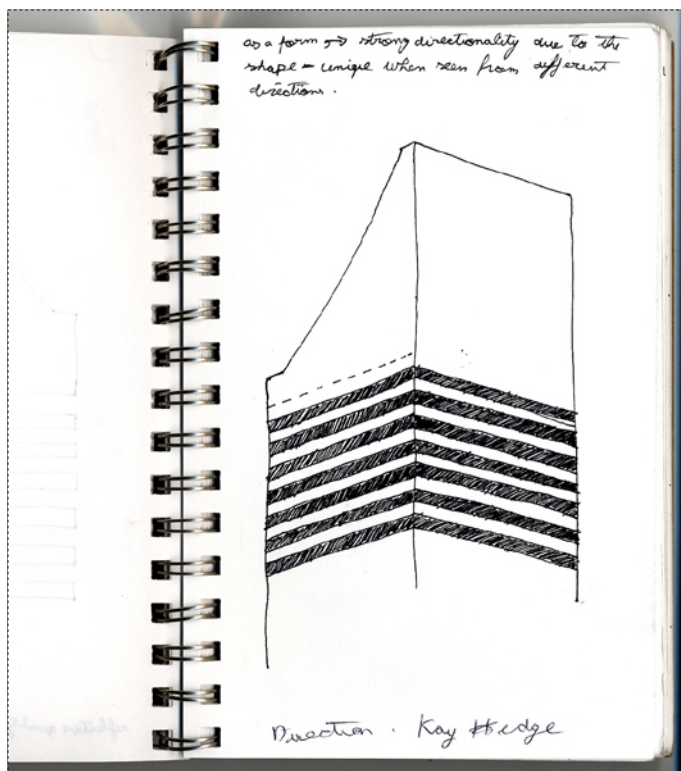 as a form → strong directionality due to the
shape - unique when seen from different
directions.
Direction . Kay Hedge